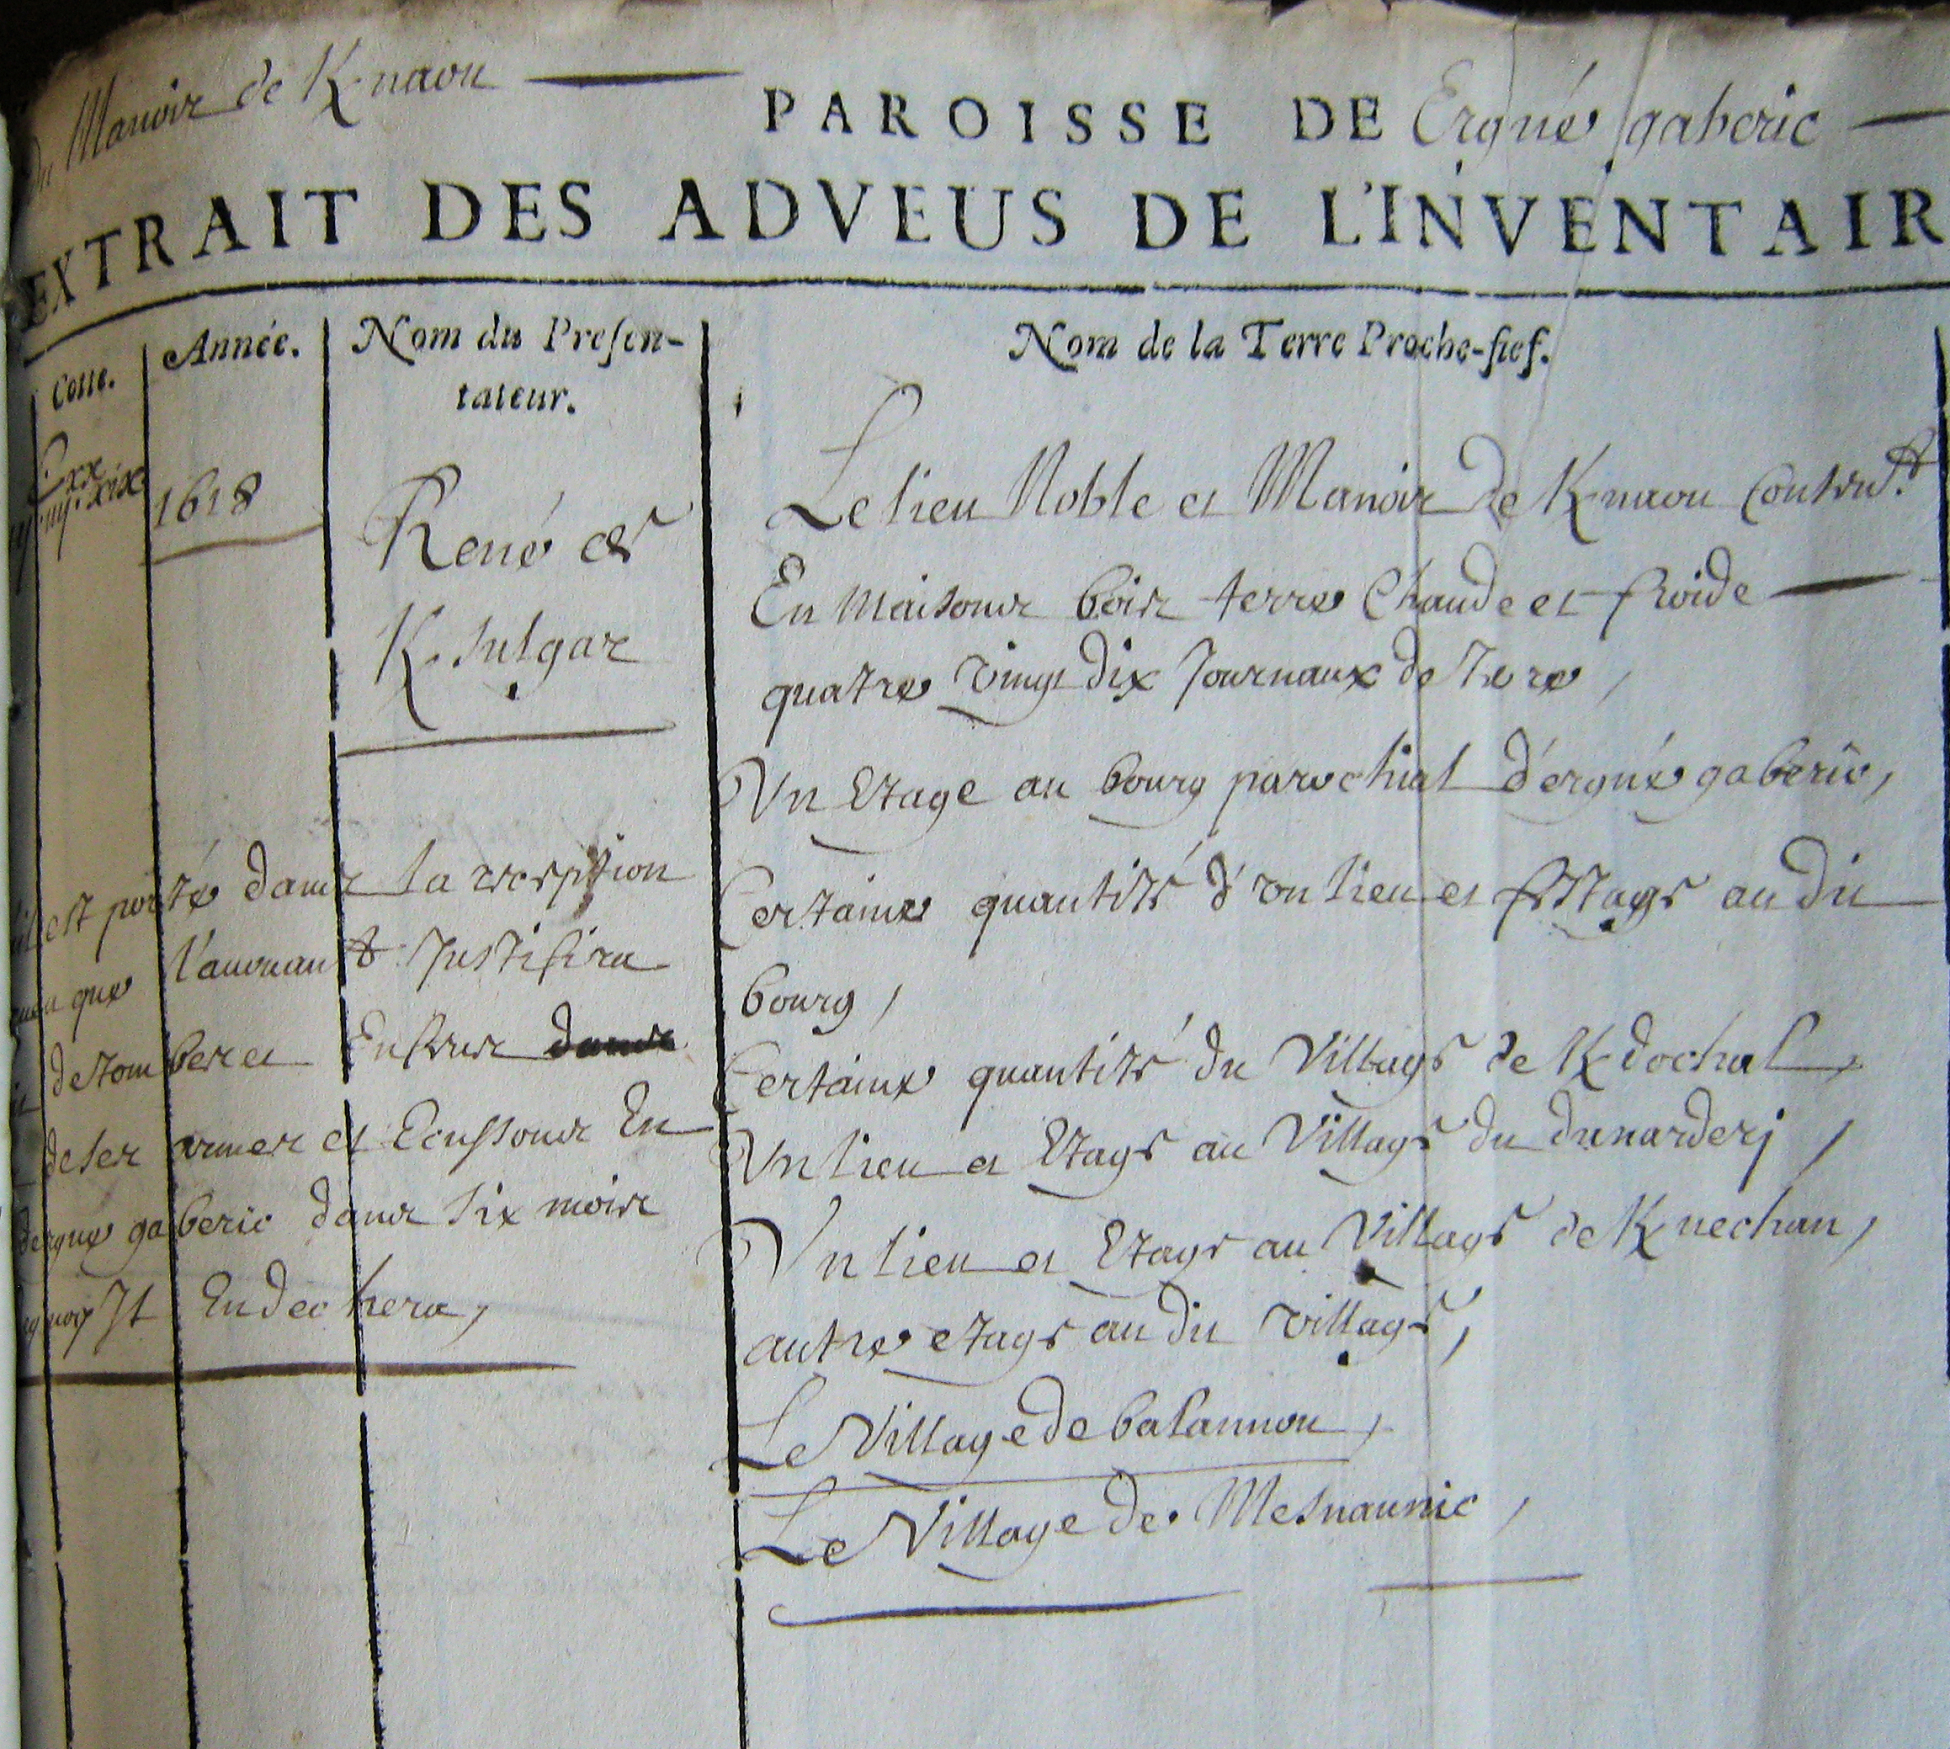 du Manoir de K/naou
PAROISSE DE Ergué gaberic
EXTRAIT DES ADVEUS DE L'INVENTAIR
Cotte.
Année.
Nom du Presen-
tateur.
Nom de la Terre Proche-fief.
1618
René de
K/sulgar
Le lieu Noble et Manoir de K/naou Conten.t
En Maisons bois terre Chaude et froide
quatre vingt dix Journaux de Terre,
Un Etage au bourg parochial d'ergué gaberic,
Certaine quantité d'un lieu et Estage au dit
bourg,
Certaine quantité du Village de K/dochal,
Un lieu et Etage au Village du dunarderj,
Un lieu et Etage au Village de K/nechan,
autre etage au dit village,
Le Village de balannou,
Le Village de Mesnaunic,
est porté dans la reception
que l'avouant Justifira
de tombes et Enfeus dans
de ses armes et Ecussons En
dergué gaberic dans six mois
quoy Il Endechera,